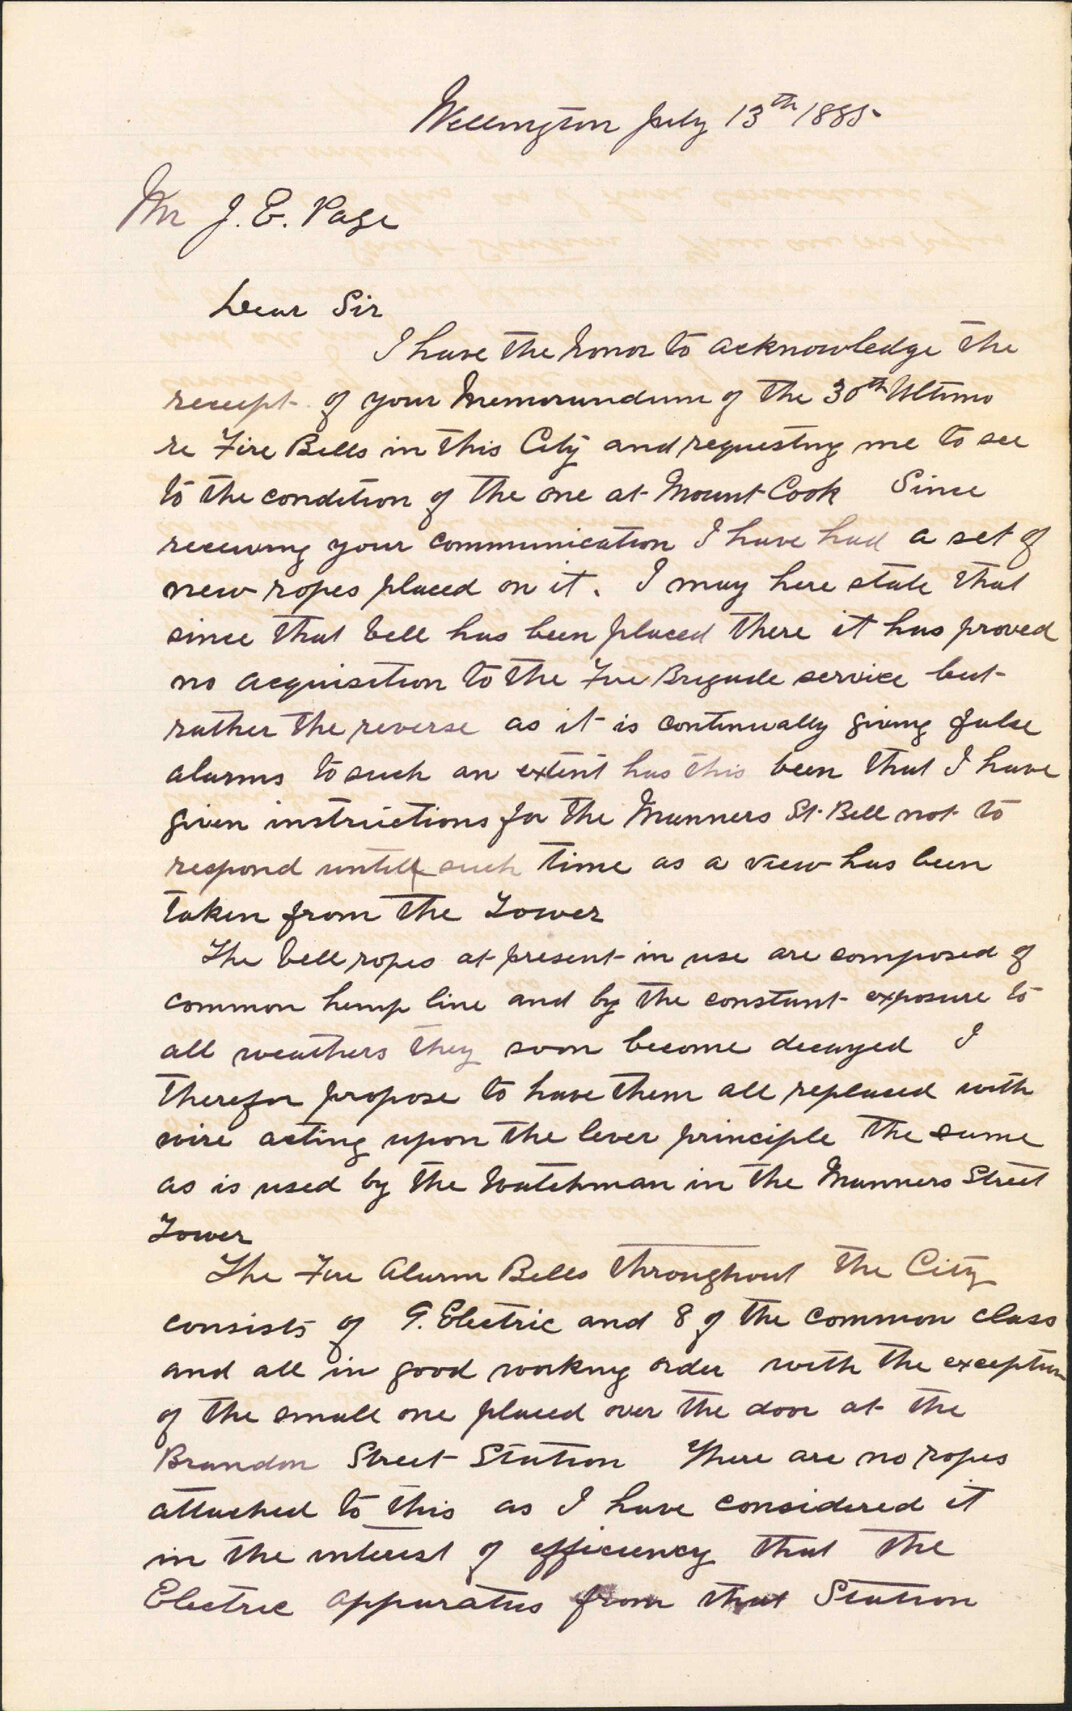 Wellington July 13th 1885
Mr J. E. Page
Dear Sir
I have the honor to acknowledge the
receipt of your Memorundum of the 30th Ultimo
re Fire Bells in this City and requesting me to see
to the condition of the one at Mount Cook Since
receiving your communication I have had a set of
new ropes placed on it. I may here state that
since that bell has been placed there it has proved
no acquisition to the Fire Brigade service but
rather the reverse as it is continually giving false
alarms to such an extent has this been that I have
given instructions for the Manners St. Bell not to
respond untill such time as a view has been
taken from the Tower
The bell ropes at present in use are composed of
common hemp line and by the constant exposure to
all weathers they soon become decayed I
therefor propose to have them all replaced with
wire acting upon the lever principle the same
as is used by the Watchman in the Manners Street
Tower
The Fire Alarm Bells throughout the City
consists of 9. Electric and 8 of the common class
and all in good working order with the exception
of the small one placed over the door at the
Brandon Street Station There are no ropes
attached to this as I have considered it
in the interest of efficiency that the
Electric apparatus from that Station